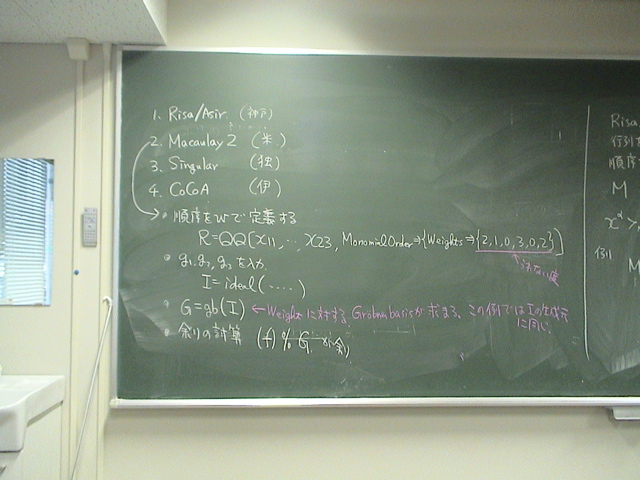 1. Risa/Asir (神戸)
2. Macaulay 2 (米)
3. Singular (独)
4. CoCoA (伊)
• 順序をwで定義する
R=QQ[x11,..,x23, MonomialOrder⇒{Weights⇒{2,1,0,3,0,2}}]
• g1, g2, g3 を入力
I=ideal(.....)
• G=gb(I) ←Weightに対するGrobnerbasisが求まる。この例ではIの生成元
に同じ
• 余りの計算 (f) % G が余り
Risa
行列
順序
M
x^α >
例)
M